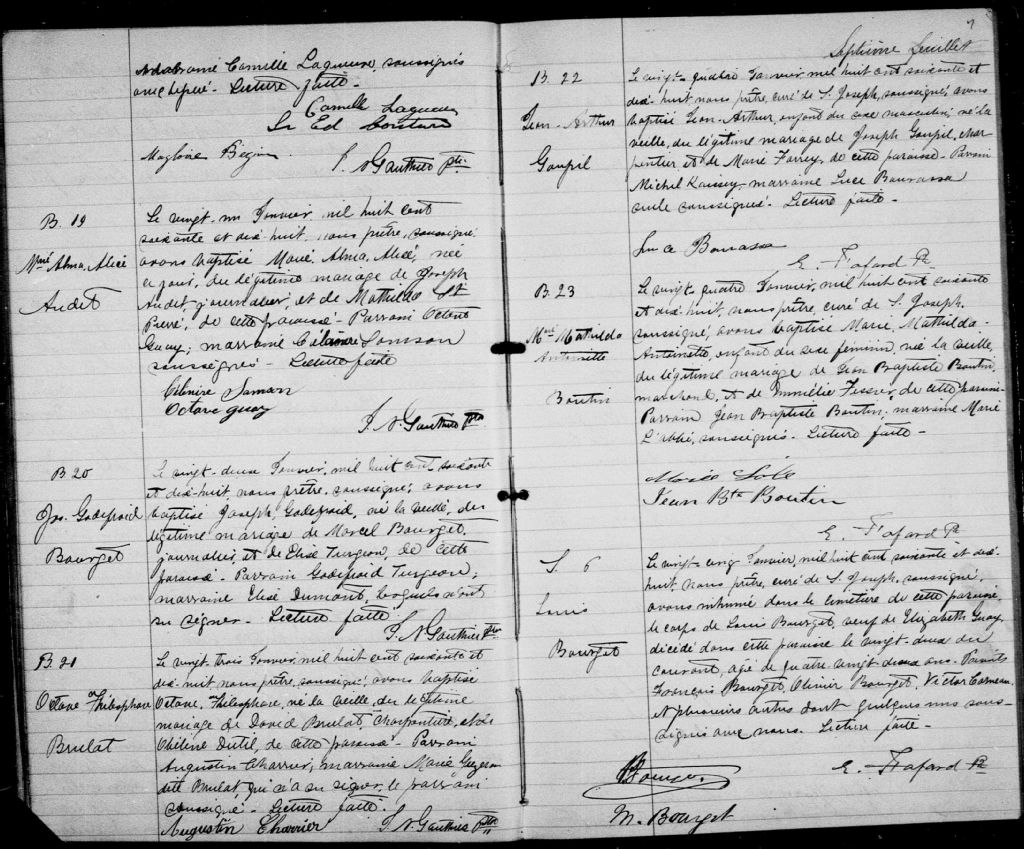 Camille Lagueux, soussignés
avec le père. Lecture faite.
Camille Lagueux
Ed Couture
Magloire Bégin
J. N. Gauthier Ptre
B. 19
Mie Alma, Alice
Audet
Le vingt-un Janvier, mil huit cent
soixante et dix-huit, nous prêtre, soussigné,
avons baptisé Marie, Alma, Alice, née
ce jour, du légitime mariage de Joseph
Audet, journalier, et de Mathilde St
Pierre, de cette paroisse. Parrain Octave
Guay, marraine Célanire Samson
soussignés. Lecture faite
Célenire Samson
Octave Guay
J. N. Gauthier Ptre
B 20
Jos. Godefroid
Bourget
Le vingt-deux Janvier, mil huit cent soixante
et dix-huit, nous prêtre, soussigné, avons
baptisé Joseph Godefroid, né la veille, du
légitime mariage de Marcel Bourget,
journalier, et de Elise Turgeon, de cette
paroisse. Parrain Godefroid Turgeon,
marraine Elise Dumont, lesquels n'ont
su signer. Lecture faite
J. N. Gauthier Ptre
B 21
Octave Philosophare
Brulat
Le vingt-trois Janvier, mil huit cent soixante et
dix-huit nous prêtre, soussigné, avons baptisé
Octave, Philosophare, né la veille, du légitime
mariage de David Brulat, charpentier, et de
Obéline Dutil, de cette paroisse. Parrain
Augustin Charrier, marraine Marie
Brulat qui n'a su signer, le parrain
soussigné. Lecture faite.
Augustin Charrier J. N. Gauthier Ptre
7
Septième feuillet
B. 22
Jean-Arthur
Goupil
Le vingt-quatre Janvier, mil huit cent soixante et
dix-huit, nous prêtre, curé de S. Joseph, soussigné, avons
baptisé Jean-Arthur, enfant du sexe masculin, né la
veille, du légitime mariage de Joseph Goupil, char
pentier et de Marie de cette paroisse. Parrain
Michel marraine Luce Bourassa
seule soussignée. Lecture faite.
Luce Bourassa
E. Fafard Ptr
B. 23
Mie Mathilda
Antoinette
Boutin
Le vingt-quatre Janvier, mil huit cent soixante
et dix-huit, nous prêtre, curé de S. Joseph,
soussigné, avons baptisé Marie, Mathilda-
Antoinette, enfant du sexe féminin, née la veille,
du légitime mariage de Jean Baptiste Boutin,
marchand, et de de cette paroisse
Parrain Jean Baptiste Boutin, marraine Marie
soussignés. Lecture faite.
Marie
Jean Bte Boutin
E. Fafard Ptr
S. 6
Louis
Bourget
Le vingt-cinq Janvier, mil huit cent soixante et dix-
huit, nous prêtre, curé de S. Joseph, soussigné,
avons inhumé dans le cimetière de cette paroisse,
le corps de Louis Bourget, veuf de Elizabeth Guay,
décédé dans cette paroisse le vingt-deux du
courant, agé de quatre-vingt-deux ans. Présents
François Bourget, Olivier Bourget, Victor Carneau,
et plusieurs autres dont quelques uns sous-
signés avec nous. Lecture faite.
E. Fafard Ptr
M. Bourget